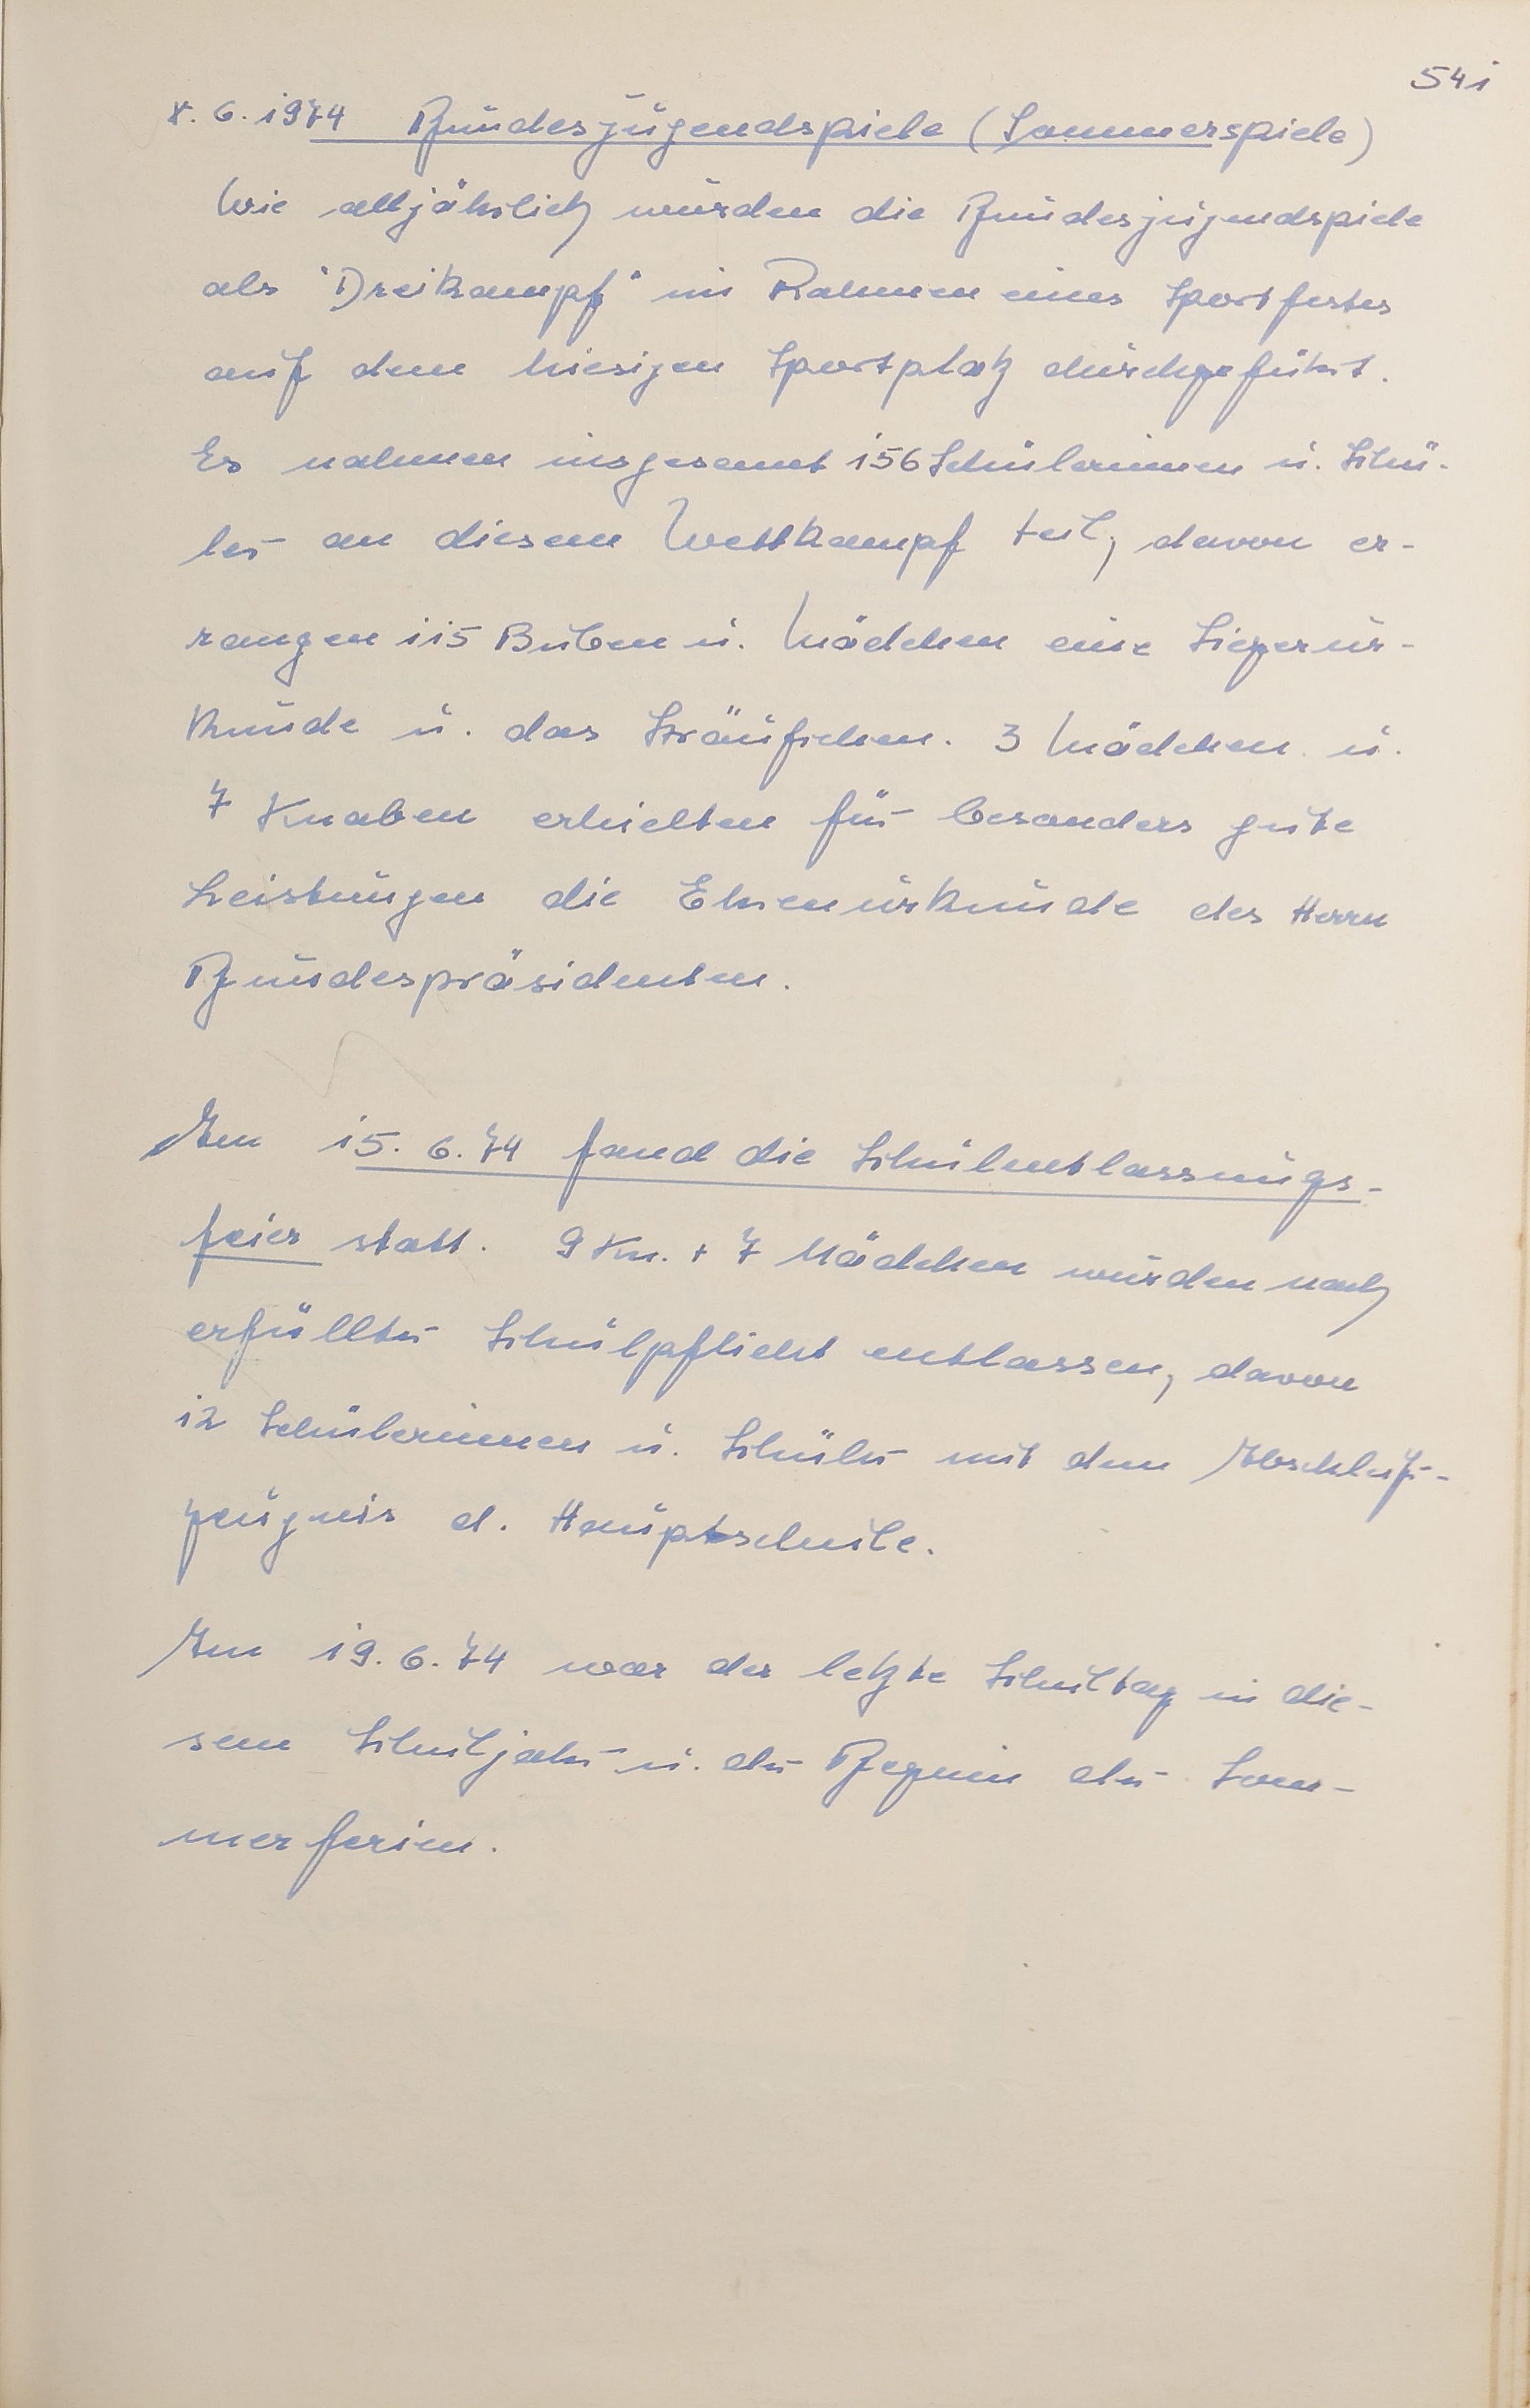 541
8. 6. 1974 Bundesjugendspiele (Sommerspiele)
Wie alljährlich wurden die Bundesjugendspiele
als "Dreikampf" im Rahmen eines Sportfestes
auf dem hiesigen Sportplatz durchgeführt.
Es nahmen insgesamt 156 Schülerinnen u. Schü-
ler an diesem Wettkampf teil, davon er-
rangen 115 Buben u. Mädchen eine Siegerur-
kunde u. das Sträußchen. 3 Mädchen u.
7 Knaben erhielten für besonders gute
Leistungen die Ehrenurkunde des Herrn
Bundespräsidenten.
Am 15. 6. 74 fand die Schulentlassungs-
feier statt. 9 Kn. + 7 Mädchen wurden nach
erfüllter Schulpflicht entlassen, davon
12 Schülerinnen u. Schüler mit dem Abschluß-
zeugnis d. Hauptschule.
Am 19. 6. 74 war der letzte Schultag in die-
sem Schuljahr u. der Beginn der Som-
merferien.